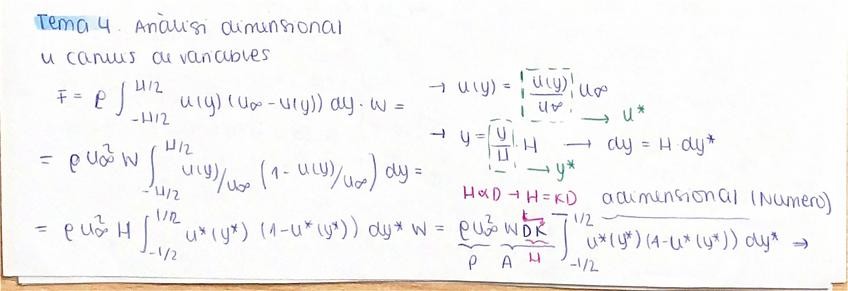 Tema 4. Anàlisi dimensional
u canvis de variables
F = ρ ∫_{-H/2}^{H/2} u(y) (u∞ - u(y)) dy · W = → u(y) = u(y)/u∞ u∞ → u*
→ y = y/H · H → dy = H · dy* → y*
= ρ u∞² W ∫_{-H/2}^{H/2} u(y)/u∞ (1 - u(y)/u∞) dy =
H ∝ D → H = KD adimensional (Numero)
= ρ u∞² H ∫_{-1/2}^{1/2} u*(y*) (1 - u*(y*)) dy* W = ρ u∞² W D K ∫_{-1/2}^{1/2} u*(y*) (1 - u*(y*)) dy* ⇒
P A H